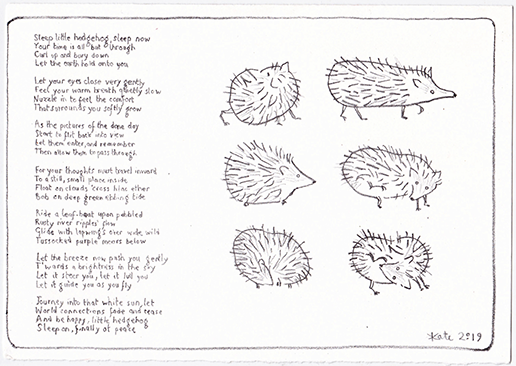 Sleep little hedgehog, sleep now
Your time is all but through
Curl up and bury down
Let the earth hold onto you

Let your eyes close very gently
Feel your warm breath quietly slow
Nuzzle in to feel the comfort
That surrounds you softly grow

As the pictures of the done day
Start to flit back into view
Let them enter, and remember
Then allow them to pass through.

For your thoughts must travel inward
To a still, small place inside
Float on clouds 'cross blue ether
Bob on deep green ebbing tide

Ride a leaf-boat upon pebbled
Rusty river ripples' slow
Glide with lapwings over wide, wild
Tussocked purple moors below

Let the breeze now push you gently
T'wards a brightness in the sky
Let it steer you, let it lull you
Let it guide you as you fly

Journey into that white sun, let
World connections fade and cease
And be happy, little hedgehog
Sleep on, finally at peace

Kate 2019